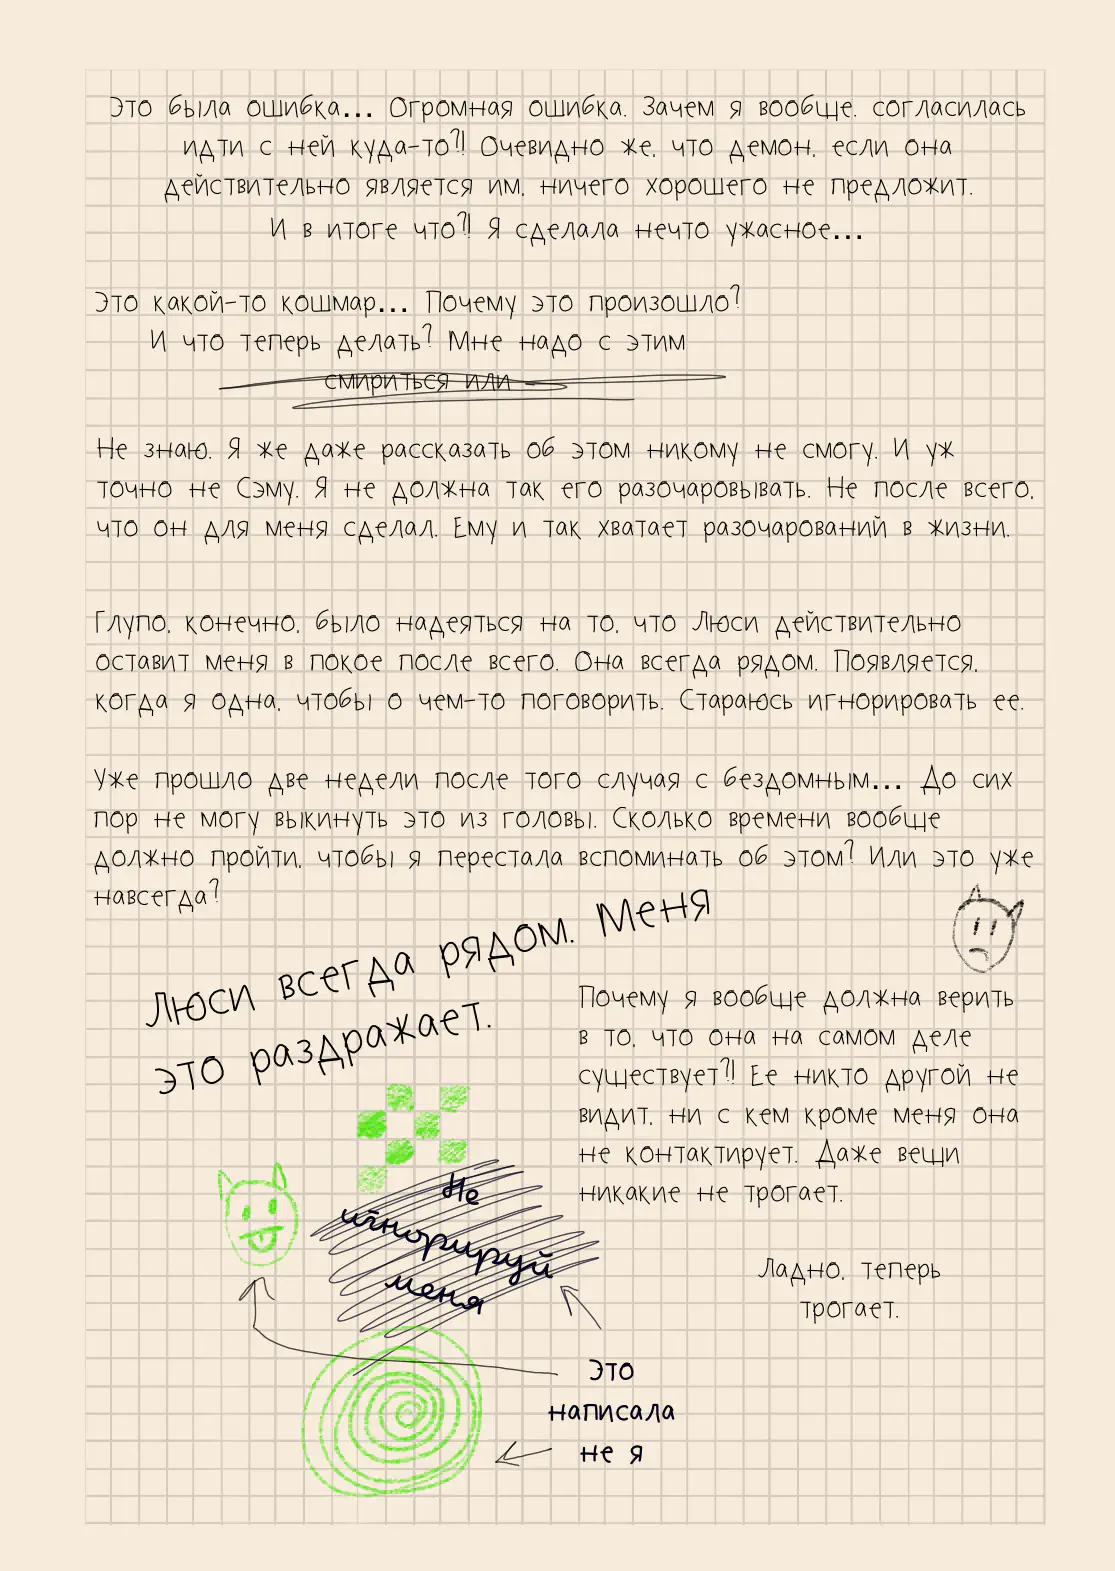 Это была ошибка... Огромная ошибка. Зачем я вообще. согласилась
идти с ней куда-то?! Очевидно же, что демон, если она
действительно является им, ничего хорошего не предложит.
И в итоге что?! Я сделала нечто ужасное...
Это какой-то кошмар... Почему это произошло?
И что теперь делать? Мне надо с этим
смириться или
Не знаю. Я же даже рассказать об этом никому не смогу. И уж
точно не Сэму. Я не должна так его разочаровывать. Не после всего,
что он для меня сделал. Ему и так хватает разочарований в жизни.
Глупо, конечно, было надеяться на то, что Люси действительно
оставит меня в покое после всего. Она всегда рядом. Появляется,
когда я одна, чтобы о чем-то поговорить. Стараюсь игнорировать ее.
Уже прошло две недели после того случая с бездомным... До сих
пор не могу выкинуть это из головы. Сколько времени вообще
должно пройти, чтобы я перестала вспоминать об этом? Или это уже
навсегда?
Люси всегда рядом. Меня
это раздражает.
Почему я вообще должна верить
в то, что она на самом деле
существует?! Ее никто другой не
видит, ни с кем кроме меня она
не контактирует. Даже вещи
никакие не трогает.
Не
игнорируй
меня
Ладно, теперь
трогает.
Это
написала
не я